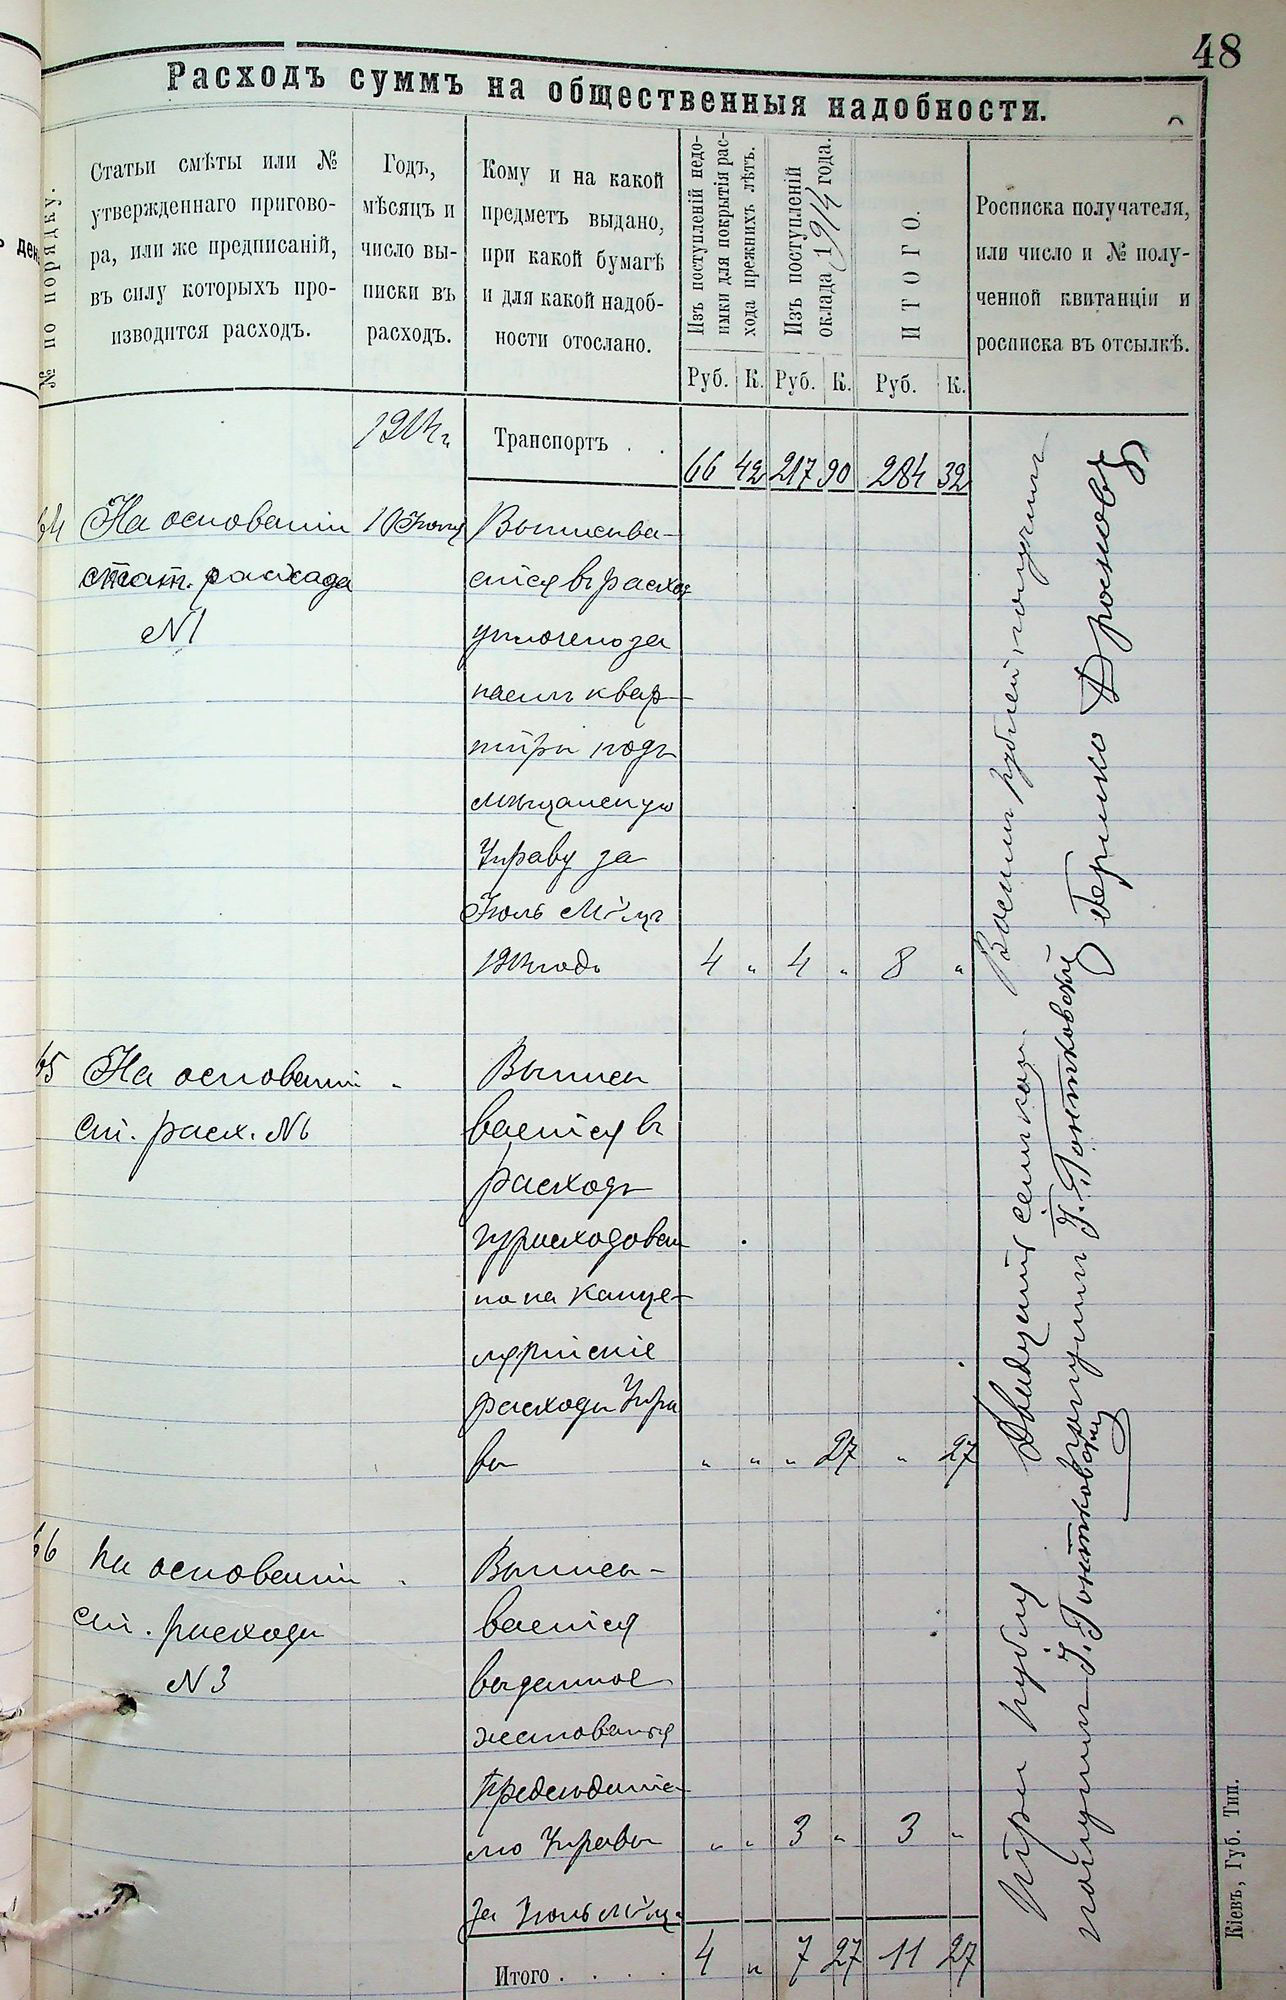 48
Расходъ суммъ на общественныя надобности.
№ по порядку.
Статьи смѣты или №
утвержденнаго пригово-
ра, или же предписаній,
въ силу которыхъ про-
изводится расходъ.
Годъ,
мѣсяцъ и
число вы-
писки въ
расходъ.
Кому и на какой
предметъ выдано,
при какой бумагѣ
и для какой надоб-
ности отослано.
Изъ поступленій недо-
имки для покрытія рас-
хода прежнихъ лѣтъ.
Изъ поступленій
оклада 1914 года.
ИТОГО.
Росписка получателя,
или число и № полу-
ченной квитанціи и
росписка въ отсылкѣ.
Руб. К. Руб. К. Руб. К.
1914 г. Транспортъ . . 66 42 217 90 284 32
64 На основаніи 10 Выписыва-
стат. расхода ется въ расход
№1 уплочено за
наемъ квар-
тиры подъ
мѣщанскую
Управу за
Іюль М-цъ
1914 годъ 4 " 4 " 8 "
Восемь рублей получилъ
Гершко
65 На основаніи " Выписы
ст. расх. №6 вается въ
расходъ
израсходован
но на канце-
лярскіе
расходы Упра
вы " " " 27 " 27
Двадцать семь коп.
получилъ Г. Понтковскій
66 На основаніи " Выписы-
ст. расхода вается
№3 выданное
жалованья
Председате-
лю Управы " " 3 " 3 "
за Іюль М-цъ
Три рубля
получилъ Г. Понтковскій
Итого . . . . 4 " 7 27 11 27
Кіевъ, Губ. Тип.